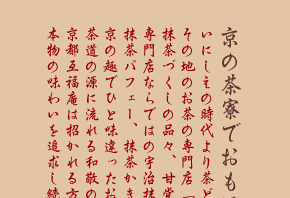 京の茶寮でおも
いにしえの時代より茶ど
その地のお茶の専門店「
抹茶づくしの品々、甘党
専門店ならではの宇治抹
抹茶パフェー、抹茶かき
京の趣でひと味違ったお
茶道の源に流れる和敬の
京都互福庵は招かれる方
本物の味わいを追求し続